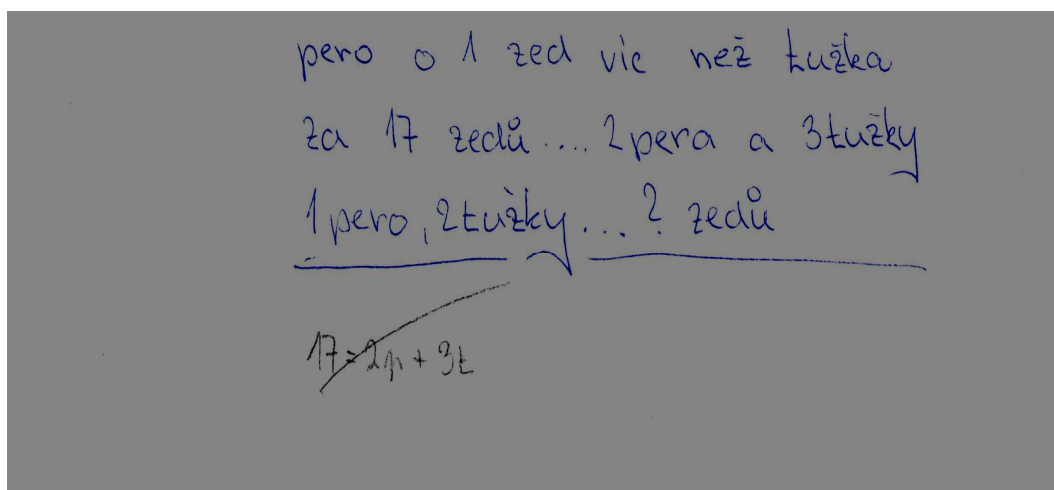 pero o 1 zed víc než tužka
za 17 zedů .... 2 pera a 3 tužky
1 pero, 2 tužky ... ? zedů
17 = 2p + 3t